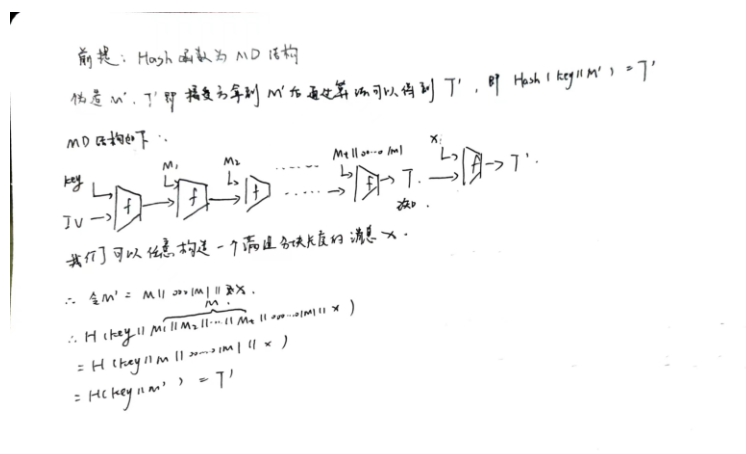 前提：Hash函数为MD结构
伪造M'，T'即接受方拿到M'后通过算法可以得到T'，即Hash(key||M')=T'
MD结构如下：
key M₁ M₂ …… Mt||00…0|M| x:
IV → f f f …… f → T. f → T'.
我们可以任意构造一个满足分块长度的消息x.
∴ 令M'=M||00…|M||| x.
M.
∴ H(key||M₁||M₂||…||Mt||00…0|M|||x)
= H(key||M||00…0|M|||x)
= H(key||M')=T'